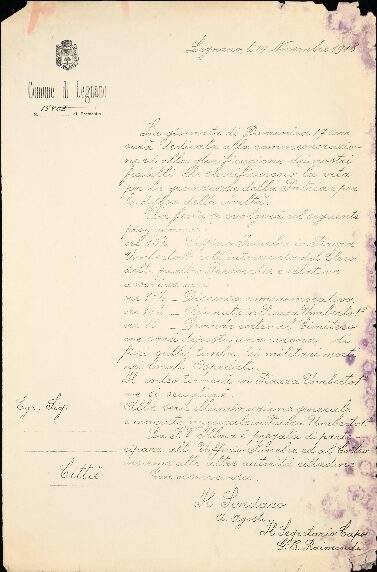 Legnano, li 14 Novembre 1918
Comune di Legnano
N. 15403 di Protocollo
La giornata di Domenica 17 corr.
sarà dedicata alla commemorazio-
ne ed alla glorificazione dei nostri
fratelli che sacrificarono la vita
per la grandezza della Patria e per
la difesa della civiltà.
La festa si svolgerà col seguente
programma:
ore 10½ - Ufficio funebre in Piazza
Umberto I° coll'intervento del Clero
delle quattro Parrocchie e relative
ore 11½ - Discorso commemorativo.
ore 14½ - Adunata in Piazza Umberto I°
ore 15 - Grande corteo al Cimitero
ove sarà deposta una corona di
fiori sulla tomba dei militari morti
nei locali Ospedali.
Il corteo tornerà in Piazza Umberto I°
ove si scioglierà.
Alla sera illuminazione generale
e concerto musicale in Piazza Umberto I°
La S.V. Ill.ma è pregata di parte-
cipare all'Ufficio funebre ed al Corteo
insieme alle altre autorità cittadine.
Con osservanza.
Egr. Sig.
Città
Il Sindaco
Il Segretario Capo
G. B. Raimondi